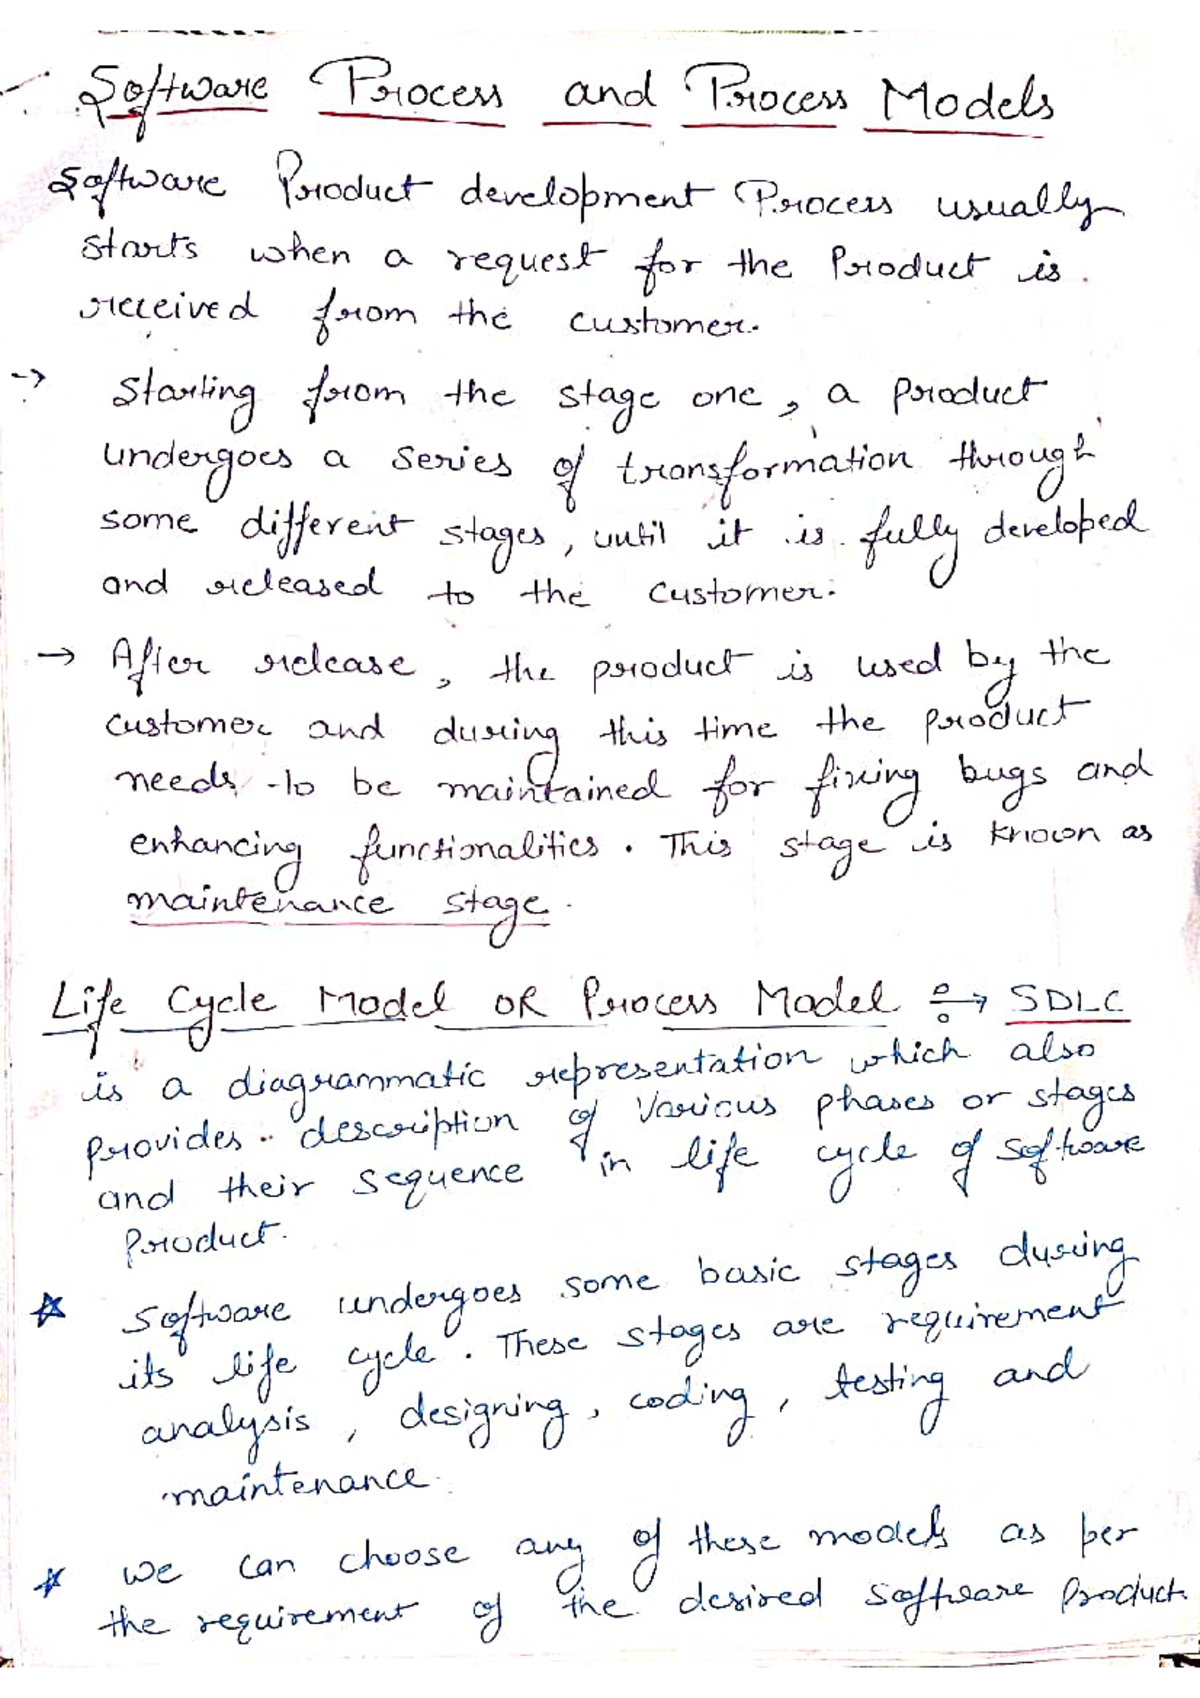 Software Process and Process Models
Software Product development Process usually
starts when a request for the Product is
received from the customer.
-> Starting from the stage one, a product
undergoes a series of transformation through
some different stages, until it is fully developed
and released to the customer.
→ After release, the product is used by the
customer and during this time the product
needs to be maintained for fixing bugs and
enhancing functionalities. This stage is known as
maintenance stage.
Life Cycle Model OR Process Model ÷→ SDLC
is a diagrammatic representation which also
provides description of various phases or stages
and their sequence in life cycle of software
Product.
☆ Software undergoes some basic stages during
its life cycle. These stages are requirement
analysis, designing, coding, testing and
maintenance.
☆ we can choose any of these models as per
the requirement of the desired software Product.